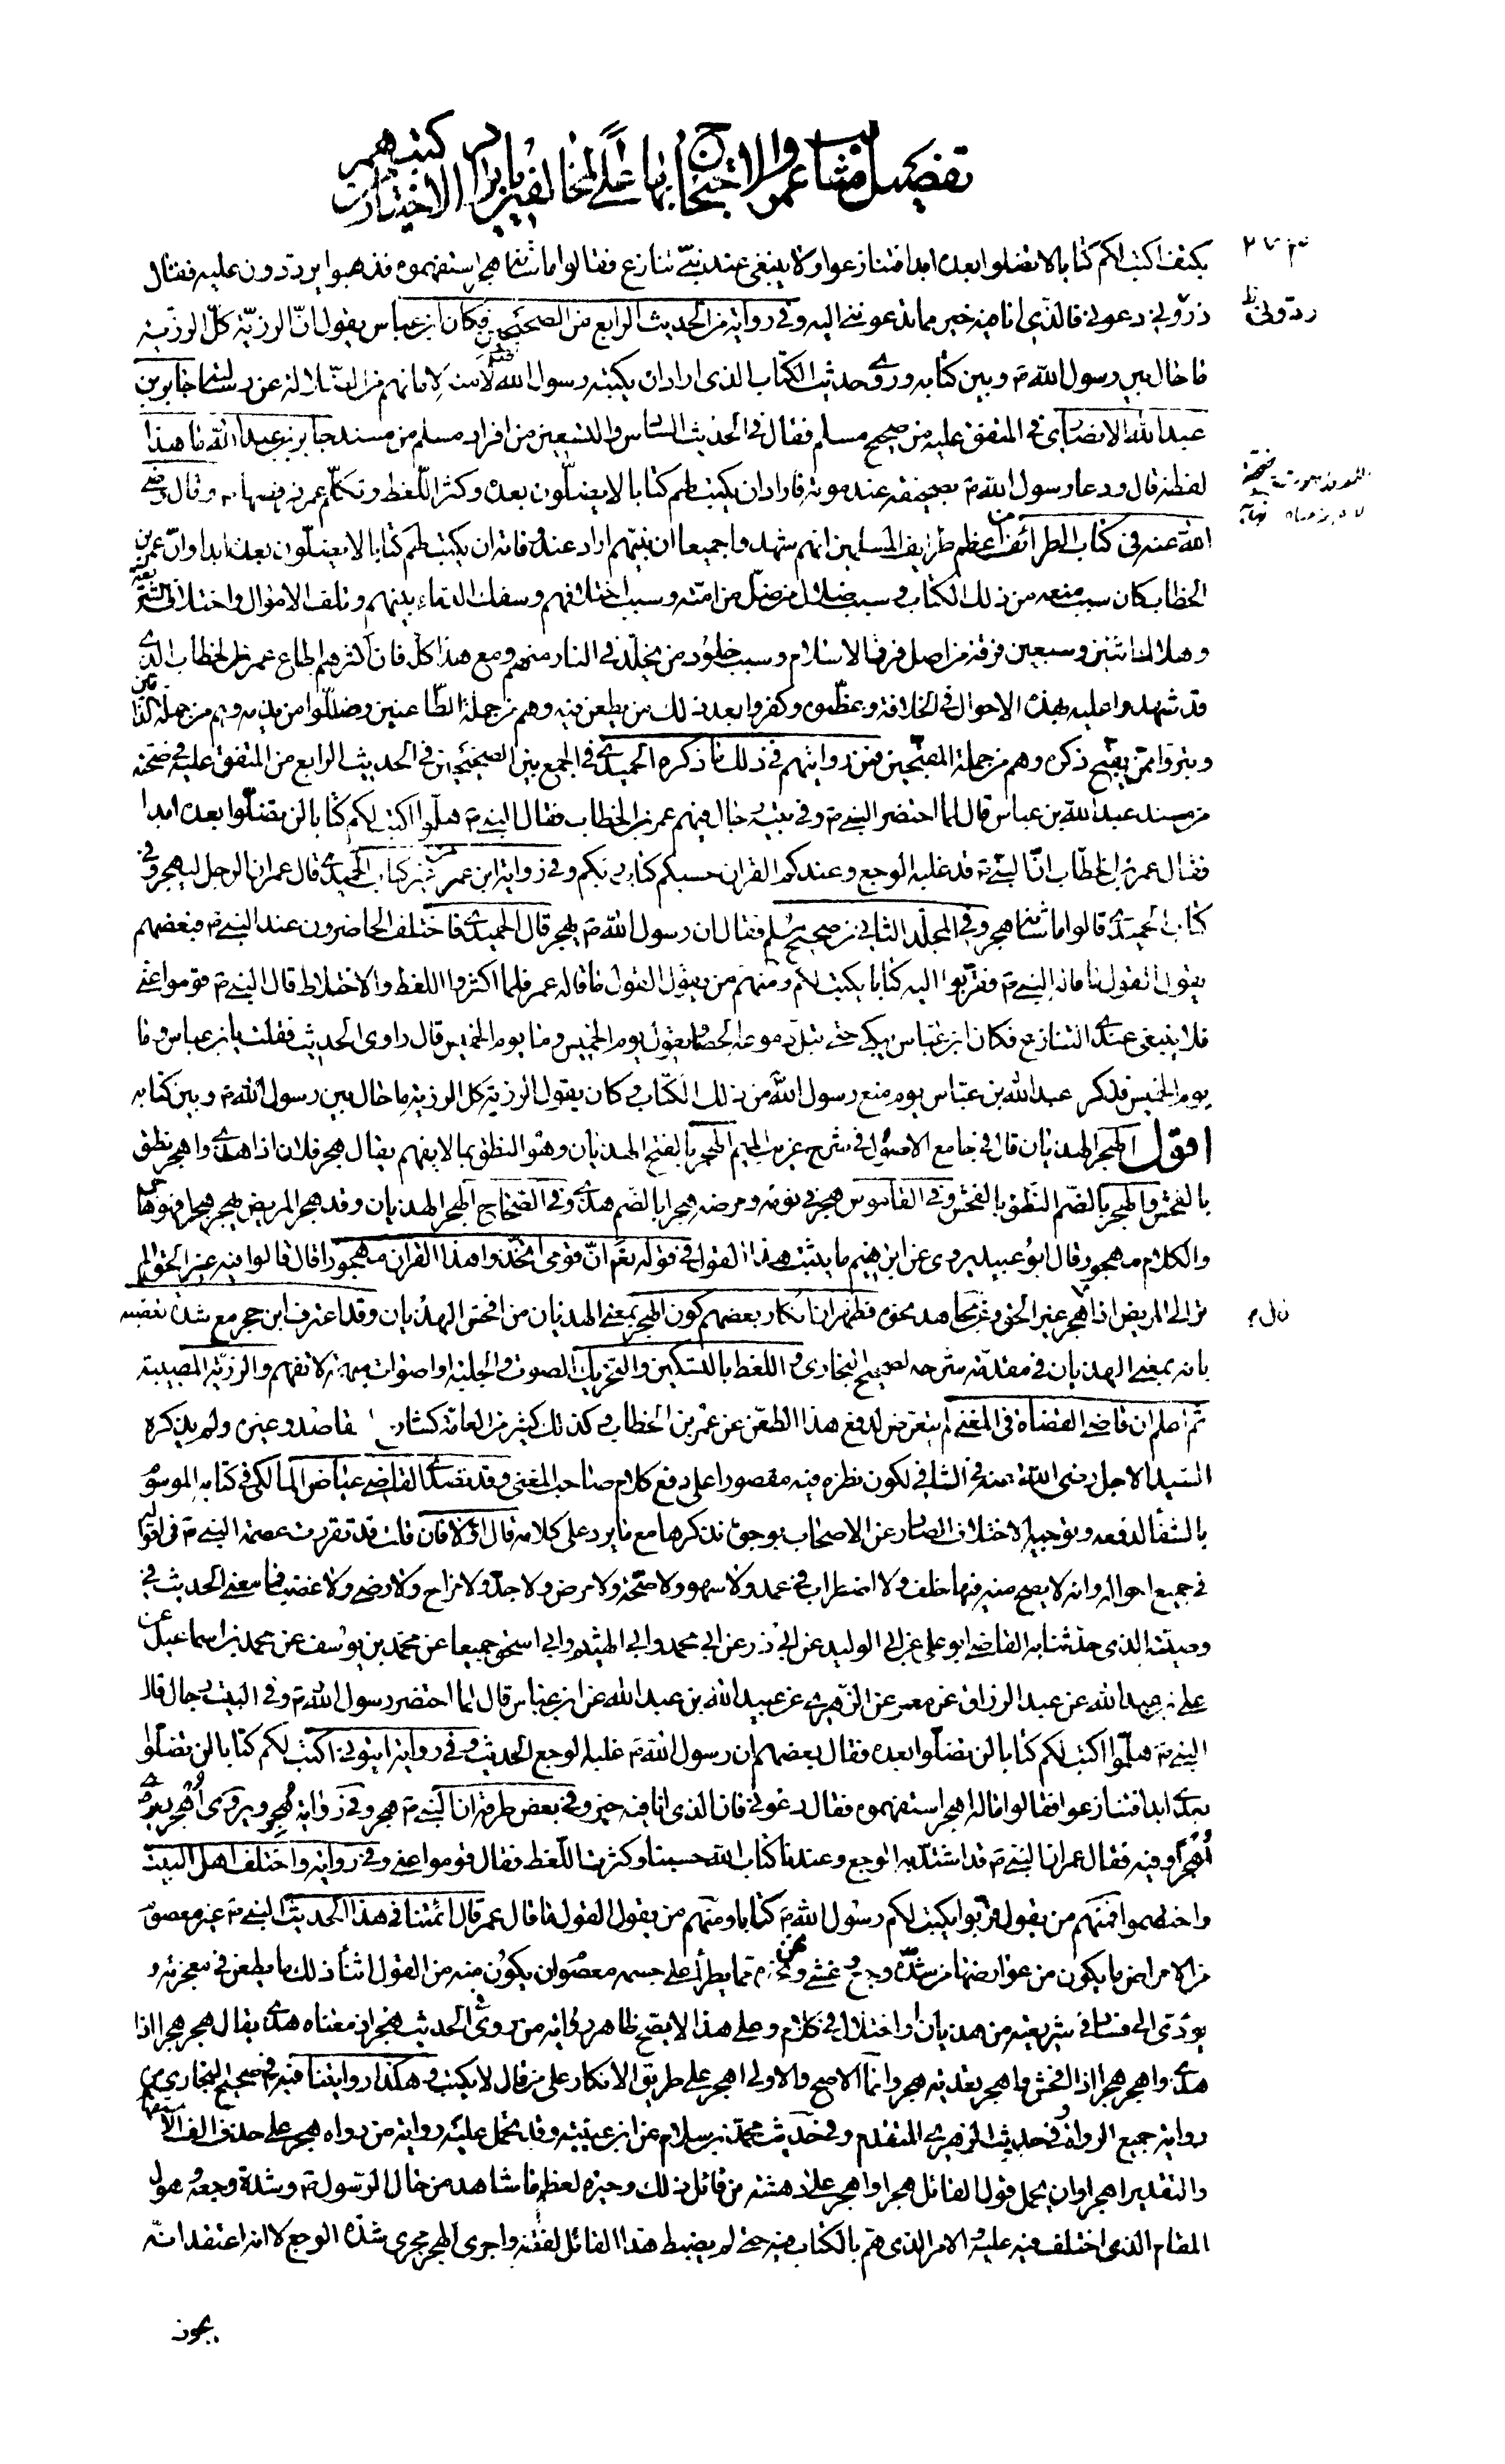 تفصيل مثالب عمر والاحتجاج بها على المخالفين بايراد الاخبار من كتبهم
بكتف اكتب لكم كتابا لا تضلوا بعده ابدا فتنازعوا ولا ينبغي عند نبيّ تنازع فقالوا ما شانه هجر استفهموه فذهبوا يردّدون عليه فقال
ردّوني
ذروني دعوني فالذي انا فيه خير مما تدعونني اليه وفي رواية من الحديث الرابع من الصحيحين فكان ابن عباس يقول انّ الرزيّة كلّ الرزيّة
ما حال بين رسول الله ص وبين كتابه وروى حديث الكتاب الذي اراد ان يكتبه رسول الله لامته لامانهم من الضلالة عن رسالته جابر بن
عبد الله الانصاري في المتفق عليه من صحيح مسلم فقال في الحديث السادس والتسعين من افراد مسلم من مسند جابر بن عبد الله ما هذا
لفظه قال ودعا رسول الله ص بصحيفة عند موته فاراد ان يكتب لهم كتابا لا يضلّون بعده وكثر اللّغط وتكلّم عمر فرفضها ص وقال رضي
الله عنه في كتاب الطرائف من اعظم طرايف المسلمين انهم شهدوا جميعا ان نبيّهم اراد عند وفاته ان يكتب لهم كتابا لا يضلّون بعده ابدا وانّ عمر بن
الخطاب كان سبب منعه من ذلك الكتاب و سبب ضلال من ضلّ من امته و سبب اختلافهم و سفك الدماء بينهم و تلف الاموال و اختلاف الشريعة
و هلاك اثنين و سبعين فرقة من اصل فرق الاسلام و سبب خلود من يخلّد في النار منهم و مع هذا كلّه فان اكثرهم اطاع عمر بن الخطاب الذي
قد شهدوا عليه بهذه الاحوال في الخلافة و عظّموه و كفروا بعد ذلك من يطعن فيه وهم من جملة الطّاعنين و ضلّلوا من يذمه وهم من جملة الذّامين
و تبرّوا ممن يقبّح ذكره وهم من جملة المقبّحين فمن روايتهم في ذلك ما ذكره الحميدي في الجمع بين الصحيحين في الحديث الرابع من المتفق عليه في صحته
من مسند عبد الله بن عباس قال لما احتضر النبي ص وفي بيته رجال فيهم عمر بن الخطاب فقال النبي ص هلمّوا اكتب لكم كتابا لن تضلّوا بعده ابدا
فقال عمر بن الخطّاب انّ النبيّ ص قد غلبه الوجع و عندكم القران حسبكم كتاب ربكم وفي رواية ابن عمر من غير كتاب الحميدي قال عمر ان الرجل ليهجر وفي
كتاب الحميدي قالوا ما شانه هجر وفي المجلّد الثاني من صحيح مسلم فقال ان رسول الله ص يهجر قال الحميدي فاختلف الحاضرون عند النبي ص فبعضهم
يقول القول ما قاله النبي ص فقرّبوا اليه كتابا يكتب لكم ومنهم من يقول القول ما قاله عمر فلما اكثروا اللغط والاختلاط قال النبي ص قوموا عني
فلا ينبغي عندي التنازع فكان ابن عباس يبكي حتى تبلّ دموعه الحصى و يقول يوم الخميس وما يوم الخميس قال راوي الحديث فقلت يا ابن عباس و ما
يوم الخميس فذكر عبد الله بن عبّاس يوم منع رسول الله من ذلك الكتاب و كان يقول الرزية كل الرزية ما حال بين رسول الله ص و بين كتابه
اقول الهجر الهذيان قال في جامع الاصول في شرح غريب الميم الهجر بالفتح الهذيان وهو النطق بما لا يفهم يقال هجر فلان اذا هذى و اهجر نطق
بالفحش والهجر بالضّم النّطق بالفحش وفي القاموس هجر في نومه ومرضه هجرا بالضّم هذى وفي الصّحاح الهجر الهذيان وقد هجر المريض يهجر هجرا فهو هاجر
والكلام مهجور قال ابو عبيد يروى عن ابراهيم ما يثبت هذا القول في قوله تعم انّ قومي اتخذوا هذا القران مهجورا قال قالوا فيه غير الحق الم
تر الى المريض اذا هجر غير الحق وعن مجاهد نحوه فظهر ان انكار بعضهم كون الهجر بمعنى الهذيان من افحش الهذيان وقد اعترف ابن حجر مع شدة تعصبه
بانه بمعنى الهذيان في مقدّمة شرحه لصحيح البخاري و اللغط بالتسكين والتحريك الصوت والجلبة او اصوات مبهمة لا تفهم والرزيّة المصيبة
ثم اعلم ان قاضي القضاة في المغني لم يتعرّض لدفع هذا الطّعن عن عمر بن الخطاب و كذلك كثير من العامّة كشارح المقاصد وغيره ولم يذكره
السّيد الاجل رضي الله عنه في الشافي لكون نظره فيه مقصورا على دفع كلام صاحب المغني وقد تصدّى القاضي عياض المالكي في كتابه الموسوم
بالشفا لدفعه و توجيه الاختلاف الصادر عن الاصحاب بوجوه نذكرها مع ما يرد على كلامه قال اوّلا فان قلت قد تقررت عصمة النبي ص في اقواله
في جميع احواله وانه لا يصح منه فيها خلف ولا اضطراب في عمد ولا سهو ولا صحّة ولا مرض ولا جدّ ولا مزاح ولا رضى ولا غضب فما معنى الحديث في
وصيته الذي حدّثنا به القاضي ابو علي عن ابي الوليد عن ابي ذر عن ابي محمد وابي الهيثم وابي اسحق جميعا عن محمّد بن يوسف عن محمد بن اسماعيل عن
علي بن عبد الله عن عبد الرزاق عن معمر عن الزّهري عن عبيد الله بن عبد الله عن ابن عباس قال لما احتضر رسول الله ص وفي البيت رجال قال
النبي ص هلمّوا اكتب لكم كتابا لن تضلّوا بعده فقال بعضهم ان رسول الله ص غلبه الوجع الحديث وفي رواية ايتوني اكتب لكم كتابا لن تضلّوا
بعدي ابدا فتنازعوا فقالوا ماله اهجر استفهموه فقال دعوني فان الذي انا فيه خير وفي بعض طرقه ان النبي ص هجر وفي رواية هجر ويروى اهجر ويروى
اهجرا وفيه فقال عمر ان النبي ص قد اشتدّ به الوجع وعندنا كتاب الله حسبنا وكثرت اللّغط فقال قوموا عني وفي رواية واختلف اهل البيت
واختصموا فمنهم من يقول قرّبوا يكتب لكم رسول الله ص كتابا ومنهم من يقول القول ما قال عمر قال ائمّتنا في هذا الحديث النبي ص غير معصوم
من الامراض ما يكون من عوارضها من شدّة وجع و غشي و نحوه مما يطرأ على جسمه معصوم ان يكون منه من القول اثناء ذلك ما يطعن في معجزته و
يؤدّى الى فساد في شريعته من هذيان او اختلال في كلام وعلى هذا لا يصّح ظاهر رواية من روى في الحديث هجر اذ معناه هذى يقال هجر هجرا اذا
هذى واهجر هجرا اذا افحش واهجر تعدية هجر وانّما الاصح والاولى اهجر على طريق الانكار على من قال لا يكتب و هكذا روايتنا فيه في صحيح البخاري من
رواية جميع الرواة وفي حديث الزهري المتقدم وفي حديث محمّد بن سلام عن ابن عيينة وقد تحمل عليه رواية من رواه هجر على حذف الف الاستفهام
والتقدير اهجر او ان يحمل قول القائل هجر او اهجر على دهشة من قائل ذلك وحيرة لعظم ما شاهد من حال الرّسول ص وشدة وجعه وهول
المقام الذي اختلف فيه عليه والامر الذي همّ بالكتاب فيه حتى لم يضبط هذا القائل لفظه واجرى الهجر مجرى شدّة الوجع لا انه اعتقد انّه
يجوز